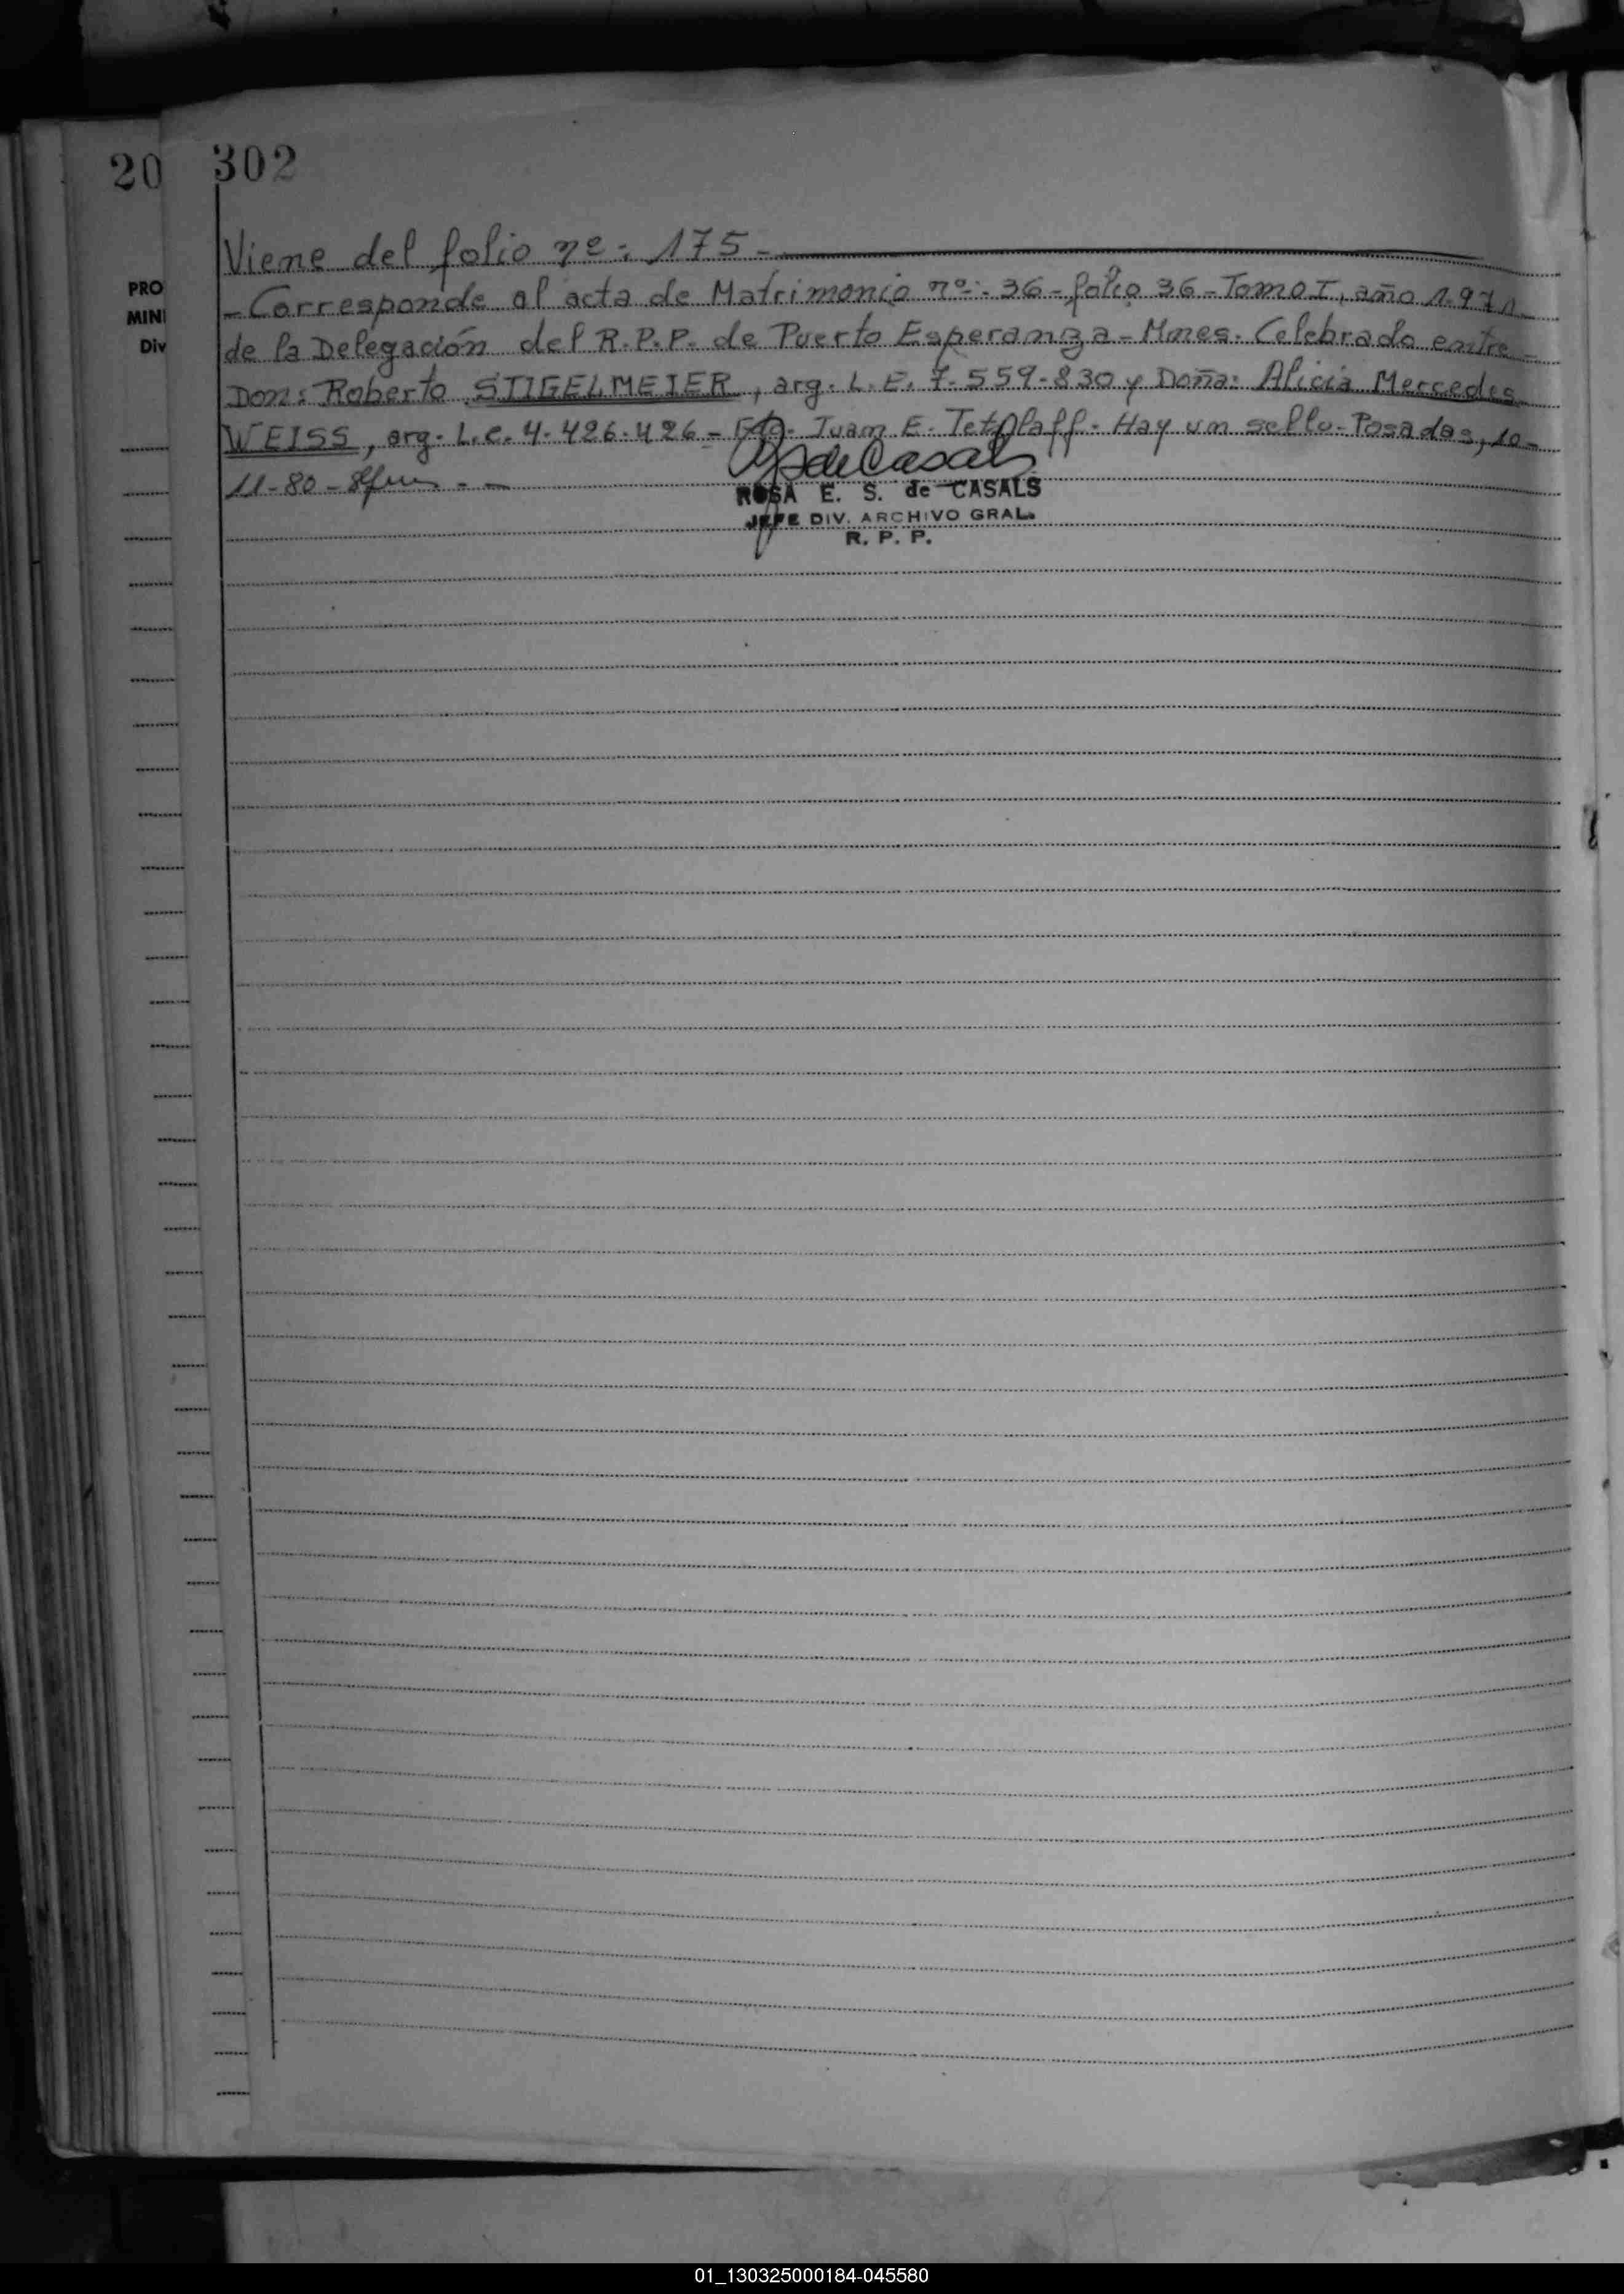 20 302
Viene del folio nº: 175-
PRO
-Corresponde al acta de Matrimonio nº:-36-folio 36-Tomo I, año 1.971-
MINI
de la Delegación del R.P.P. de Puerto Esperanza-Mnes. Celebrado entre-
Div
Don: Roberto STIGELMEIER, arg. L.E. 7.559.830 y Doña: Alicia Mercedes
WEISS, arg. L.C. 4.426.426- Fdo. Juan E. Tetzlaff. Hay un sello-Posadas, 10-
11-80-
ROSA E. S. de CASALS
JEFE DIV. ARCHIVO GRAL.
R. P. P.
01_130325000184-045580